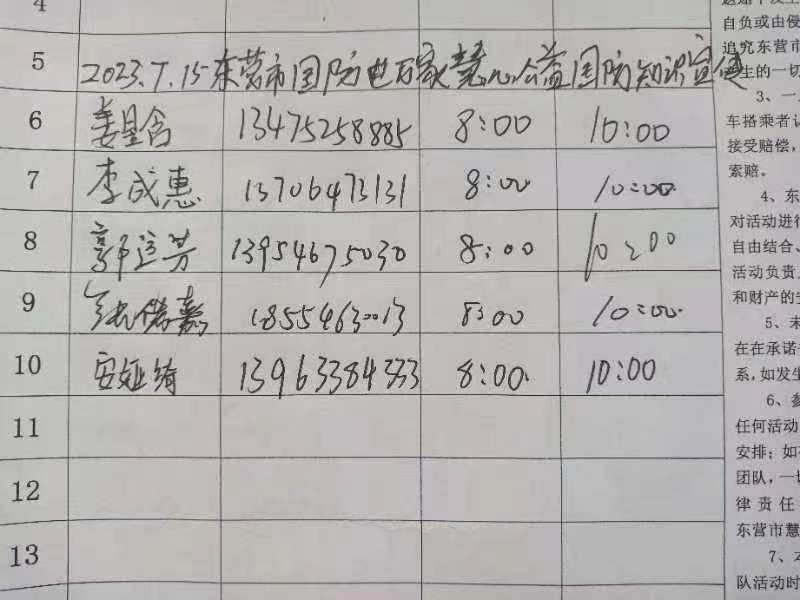 4
5 2023.7.15东营市国防进万家慧心公益国防知识宣
6 姜星含 13475258885 8:00 10:00
7 李成惠 13706473131 8:00 10:00
8 郭运芳 13954675030 8:00 10:00
9 18554630013 8:00 10:00
10 安娅绮 13963384333 8:00 10:00
11
12
13
自负或由侵
追究东营市
生的一切
3、一
车搭乘者认
接受赔偿,
索赔。
4、东
对活动进行
自由结合、
活动负责
和财产的主
5、未
在在承诺书
系,如发生
6、参
任何活动
安排;如
团队,一切
律责任
东营市慧
7、本
队活动时